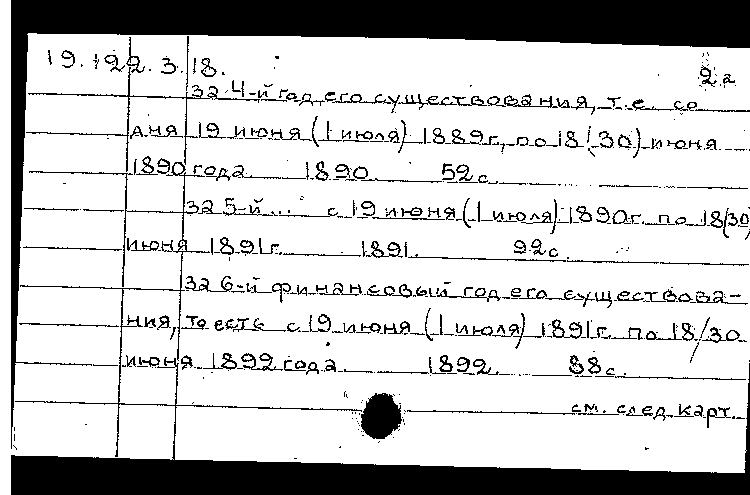 19.122.3.18. 2а
за 4-й год его существования, т.е. со
дня 19 июня (1 июля) 1889г., по 18(30) июня
1890 года. 1890. 52с.
за 5-й... с 19 июня (1 июля) 1890г. по 18(30)
июня 1891г. 1891. 92с.
за 6-й финансовый год его существова-
ния, то есть с 19 июня (1 июля) 1891г. по 18/30
июня 1892 года. 1892. 88с.
см. след. карт.